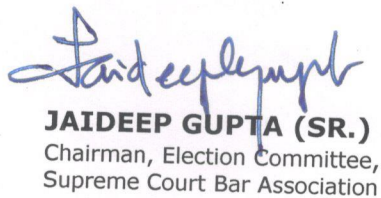 Jaideep Gupta
JAIDEEP GUPTA (SR.)
Chairman, Election Committee,
Supreme Court Bar Association